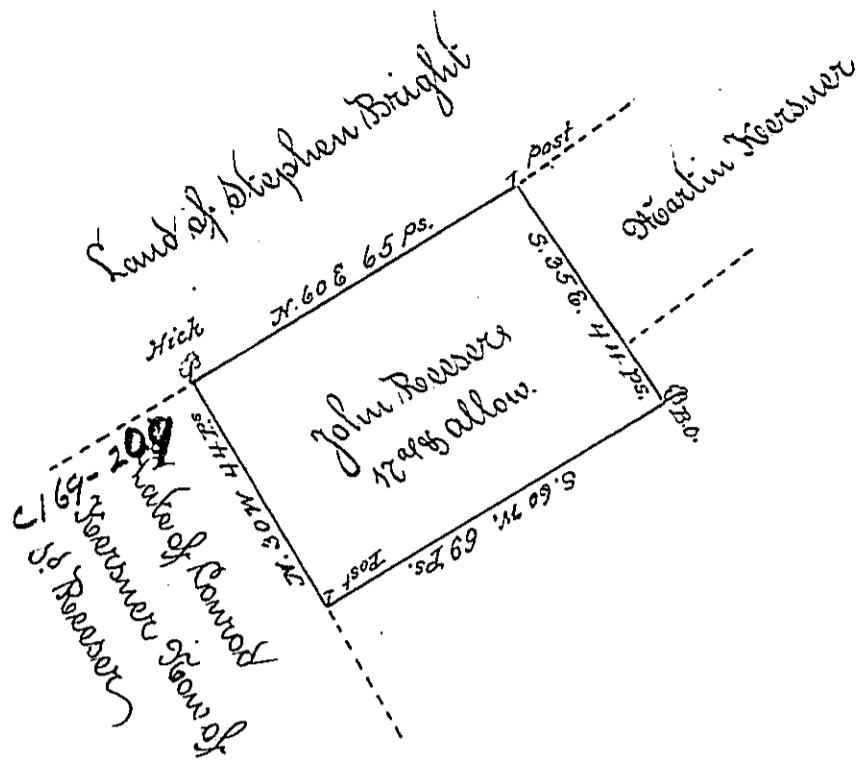 Land of Stephen Bright
Martin Kersner
post
N. 60 E 65 ps.
Hick
S. 35 E. 44 ps.
John Reesers
17 a & allow.
B.O.
S. 60 W. 69 Ps.
Post
N. 30 W 44 Ps
C169-209
Late of Conrad
Kersner now of
Sd Reeser